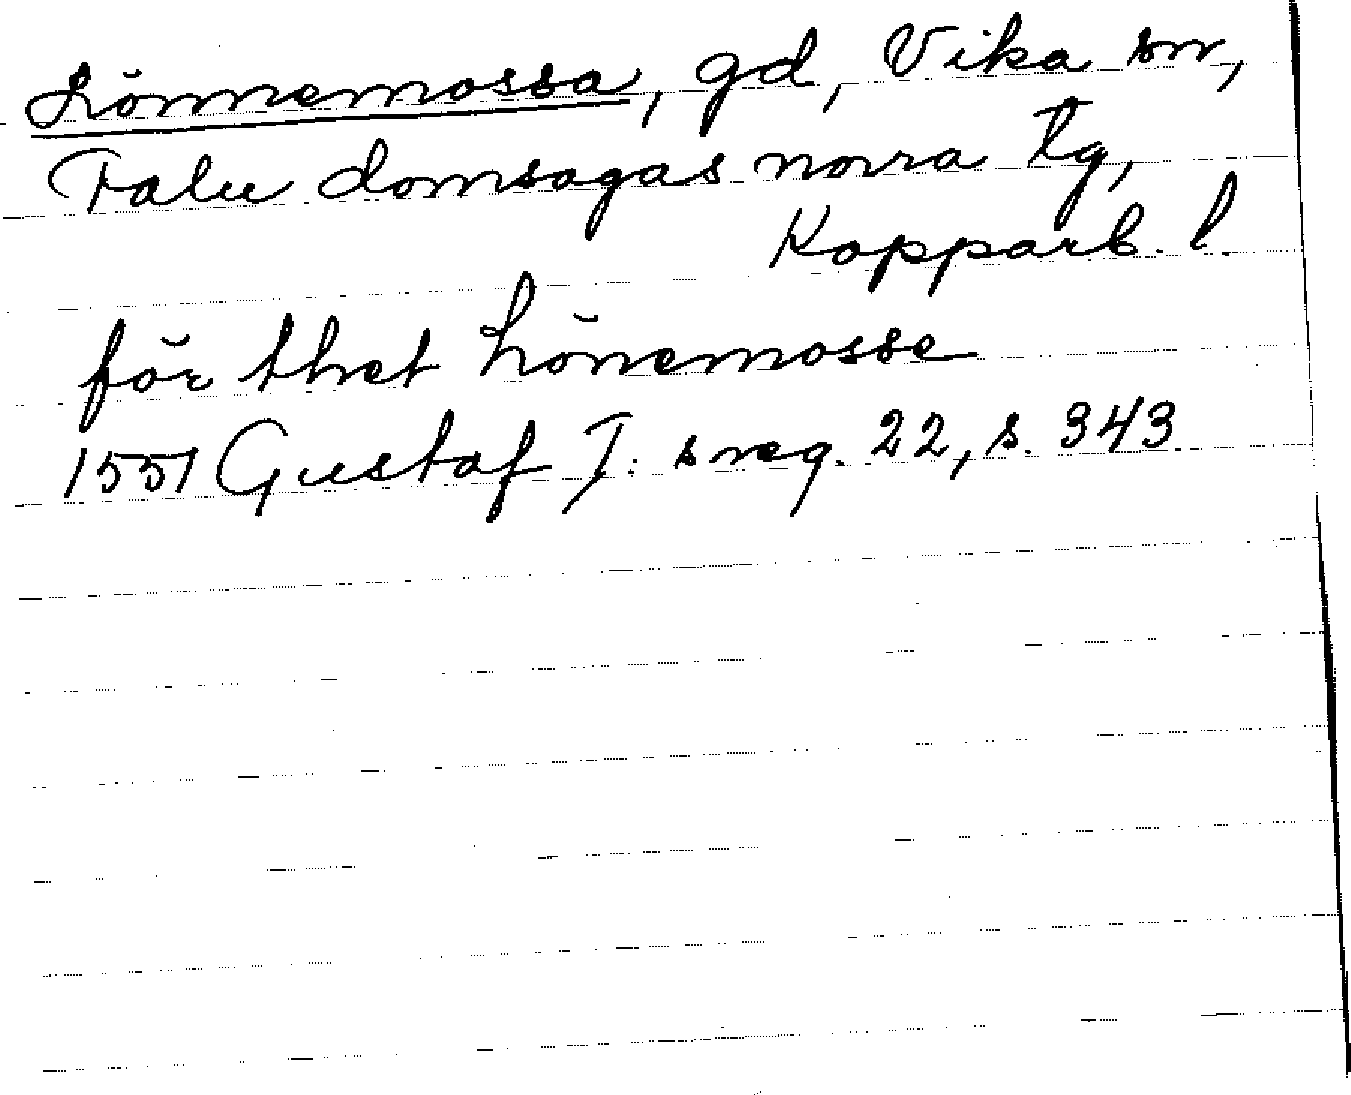 Lönnemossa, gd, Vika sn,
Falu domsagas norra tg,
Kopparb. l.
för thet Lönemosse
1551 Gustaf I: s reg. 22, s. 343